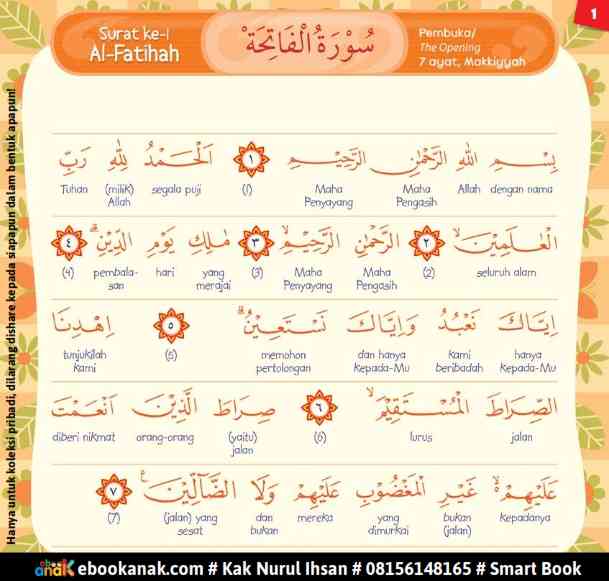 1
Surat ke-1
Al-Fatihah
سُوْرَةُ الْفَاتِحَةْ
Pembuka/
The Opening
7 ayat, Makkiyyah
Hanya untuk koleksi pribadi, dilarang dishare kepada siapapun dalam bentuk apapun!
بِسْمِ اللّٰهِ الرَّحْمٰنِ الرَّحِيْمِ ١ اَلْحَمْدُ لِلّٰهِ رَبِّ
dengan nama Allah Maha Pengasih Maha Penyayang (1) segala puji (milik) Allah Tuhan
الْعٰلَمِيْنَۙ ٢ الرَّحْمٰنِ الرَّحِيْمِۙ ٣ مٰلِكِ يَوْمِ الدِّيْنِۗ ٤
seluruh alam (2) Maha Pengasih Maha Penyayang (3) yang merajai hari pembala-san (4)
اِيَّاكَ نَعْبُدُ وَاِيَّاكَ نَسْتَعِيْنُۗ ٥ اِهْدِنَا
hanya kepada-Mu kami beribadah dan hanya kepada-Mu memohon pertolongan (5) tunjukilah kami
الصِّرَاطَ الْمُسْتَقِيْمَۙ ٦ صِرَاطَ الَّذِيْنَ اَنْعَمْتَ
jalan lurus (6) (yaitu) jalan orang-orang diberi nikmat
عَلَيْهِمْ ەۙ غَيْرِ الْمَغْضُوْبِ عَلَيْهِمْ وَلَا الضَّاۤلِّيْنَࣖ ٧
kepadanya bukan (jalan) yang dimurkai mereka dan bukan (jalan) yang sesat (7)
ebook anak ebookanak.com # Kak Nurul Ihsan # 08156148165 # Smart Book